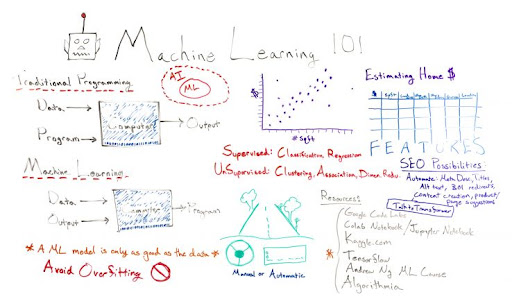 Machine Learning 101
Traditional Programming
Data
Program
Computer
Output
AI
ML
$
# Sqft
Estimating Home $
$
FEATURES
Supervised: Classification, Regression
UnSupervised: Clustering, Association, Dimen. Redu.
Machine Learning
Data
Output
Computer
Program
* A ML model is only as good as the data *
Avoid Overfitting
Manual or Automatic
SEO Possibilities:
Automate: Meta Desc, Titles,
Alt text, 301 redirects,
Content creation, product/
page suggestions
Resources:
Google Code Labs
Colab Notebook/Jupyter Notebook
Kaggle.com
* Tensorflow
Andrew Ng ML Course
Algorithmia